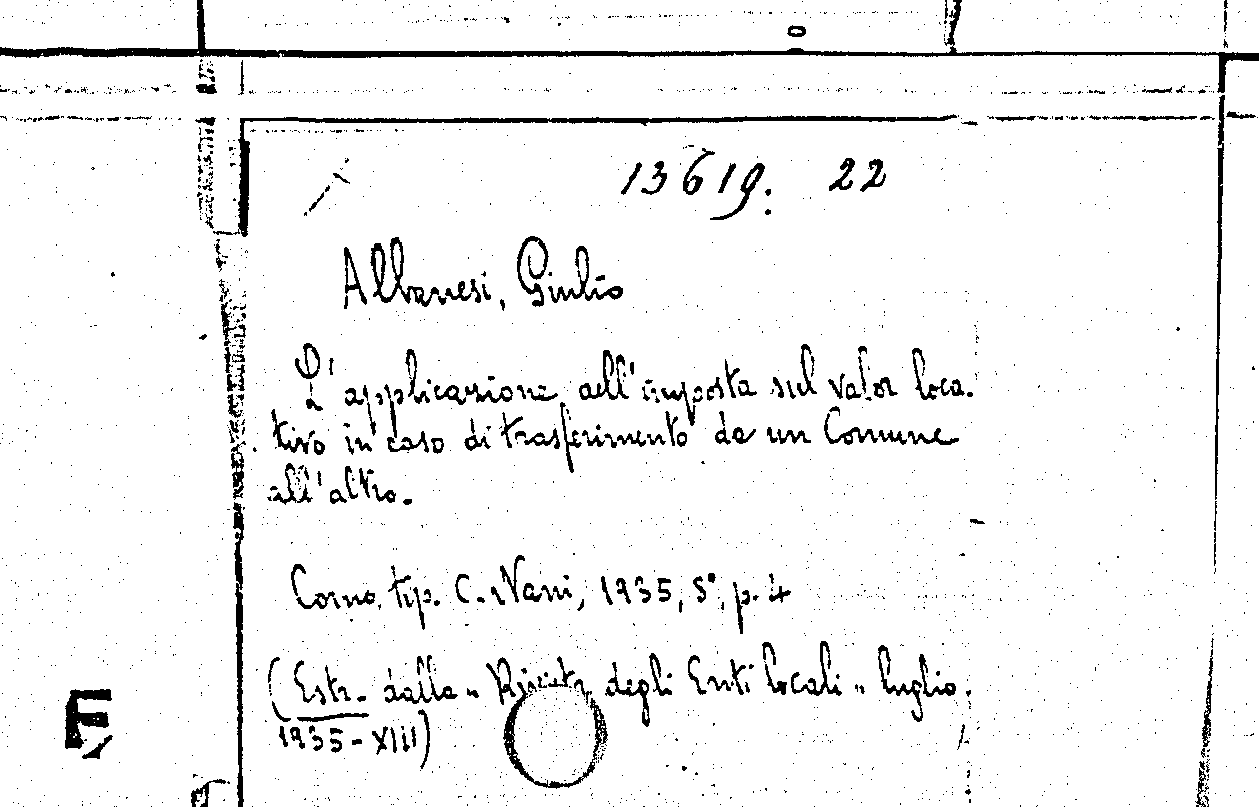 13619. 22
Albanesi, Giulio
L'applicazione dell'imposta sul valor loca-
tivo in caso di trasferimento da un Comune
all'altro.
Como, tip. C. Nani, 1935, 8°, p. 4
(Estr. dalla "Rivista degli Enti locali" luglio.
1935-XIII)
E